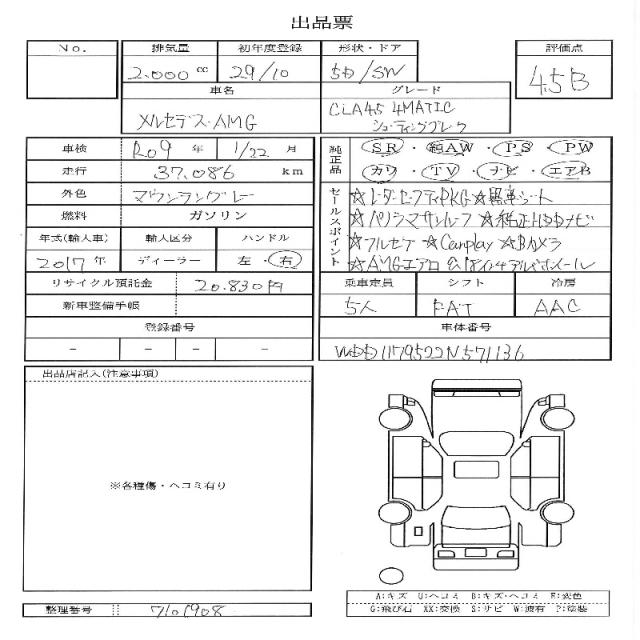 出品票
No. 排気量 初年度登録 形状・ドア 評価点
2.000 cc 29/10 5D/SW 4.5B
車名 グレード
メルセデス・AMG CLA45 4MATIC
シューティングブレーク
車検 R09 年 1/22 月
走行 37,086 km
外色 マウンテングレー
燃料 ガソリン
年式(輸入車) 輸入区分 ハンドル
2017年 ディーラー 左・右
リサイクル預託金 20.830円
新車整備手帳
登録番号
- - - -
純正品 SR・純AW・PS・PW
カワ・TV・ナビ・エアB
セールスポイント
☆レーダーセーフティPKG☆黒革シート
☆パノラマサンルーフ ☆純正HDDナビ
☆フルセグ ☆Carplay ☆Bカメラ
☆AMGエアロ&18インチアルミホイール
乗車定員 シフト 冷房
5人 FAT AAC
車体番号
WDD1179522N571136
出品店記入(注意事項)
※各種傷・ヘコミ有り
A:キズ U:ヘコミ B:キズ・ヘコミ E:変色
G:飛び石 XX:交換 S:サビ W:波有 P:塗装
整理番号 7101908